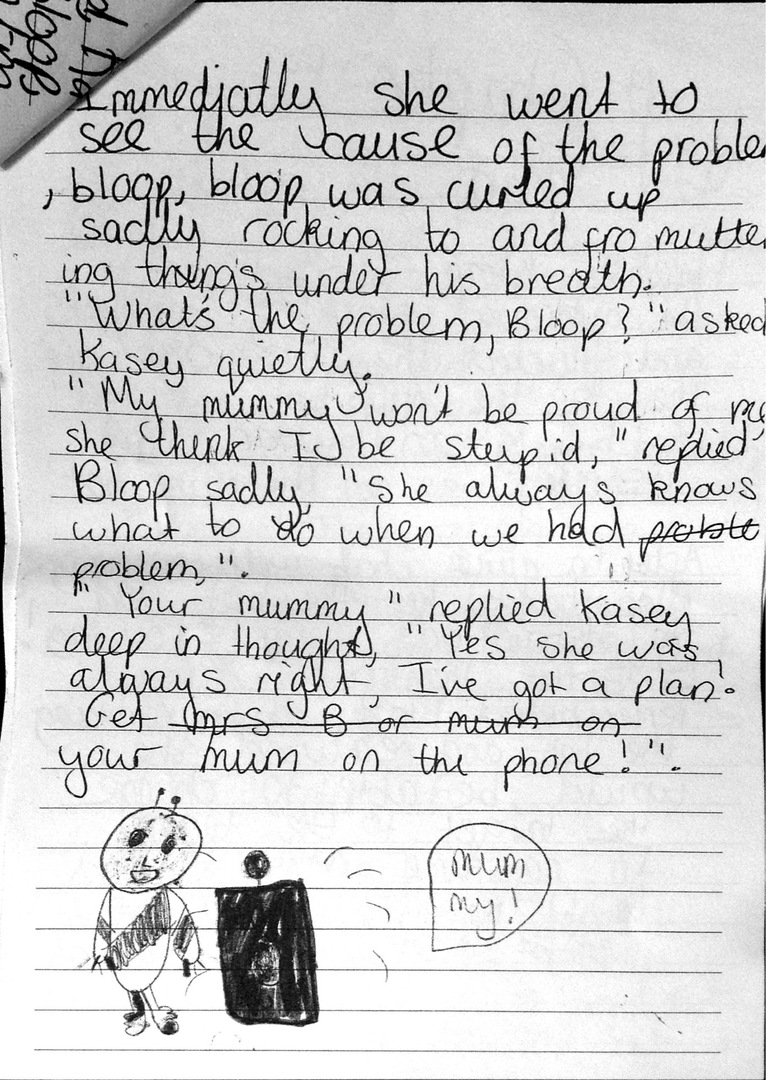 Immediatly she went to
see the cause of the proble
, bloop, bloop was curled up
sadly rocking to and fro mutte
ing things under his breath.
"What's the problem, Bloop?" asked
Kasey quietly.
"My mummy won't be proud of me
she think I be stupid," replied
Bloop sadly, "She always knows
what to do when we had proble
problem,".
"Your mummy" replied Kasey
deep in thought, "Yes she was
always right, I've got a plan.
Get mrs B or mum on
your mum on the phone!".
mum
my!